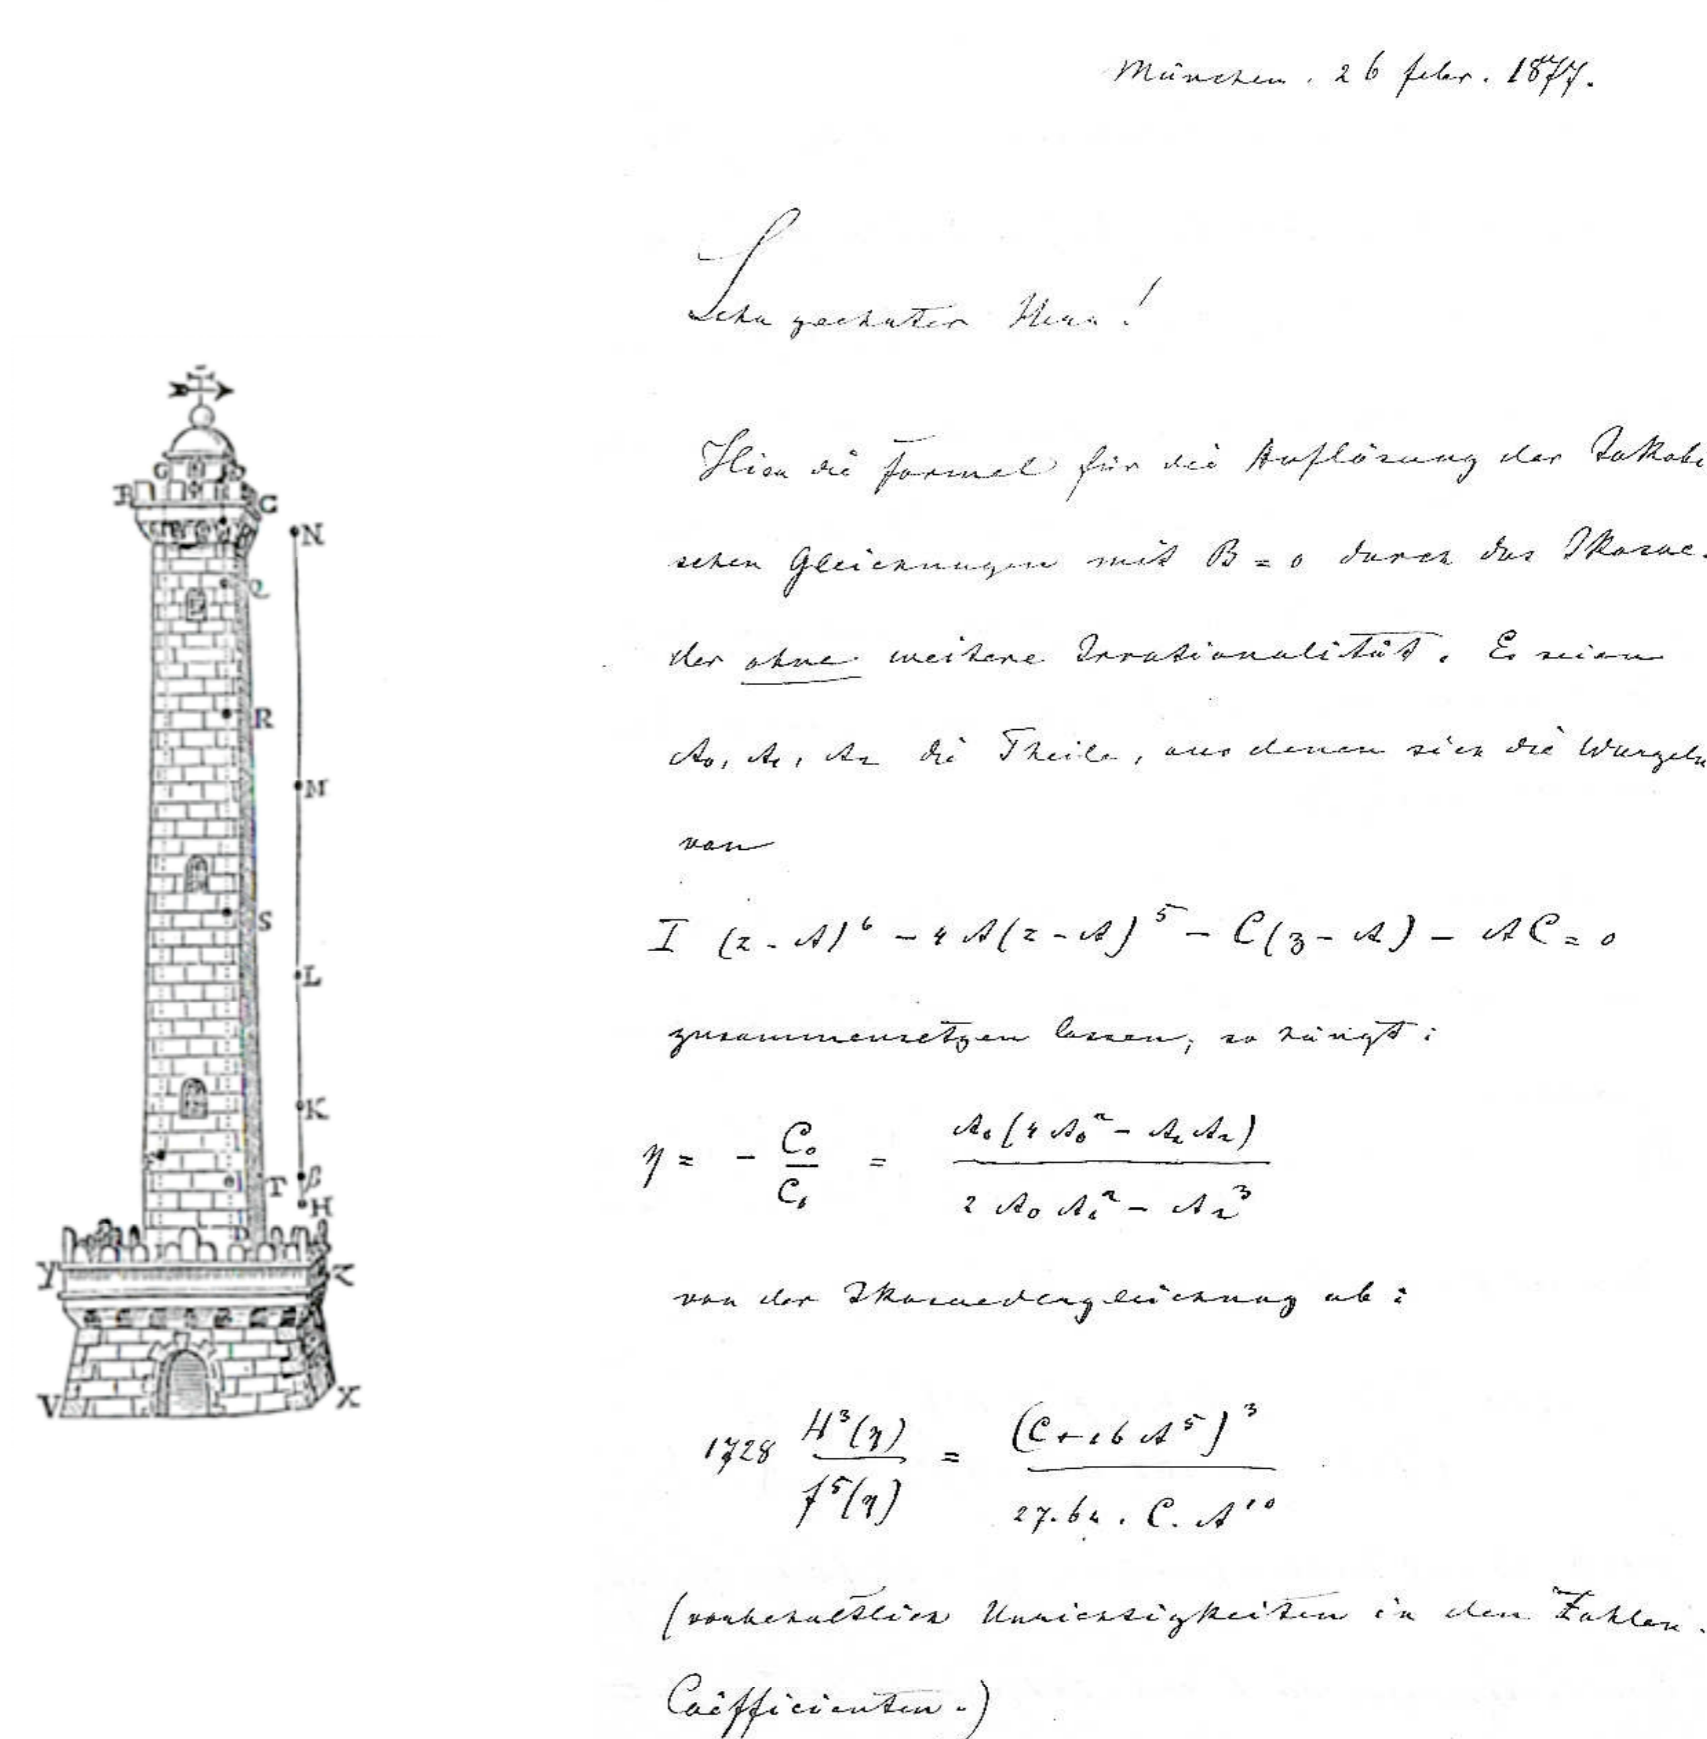 München . 26 febr. 1877.
Sehr geehrter Herr!
Hier die Formel für die Auflösung der Jakobi
schen Gleichungen mit B = 0 durch das Ikosae-
der ohne weitere Irrationalität. Es seien
A₀, A₁, A₂ die Theile, aus denen sich die Wurzeln
von
I (z - A)⁶ - 4 A(z - A)⁵ - C(z - A) - AC = 0
zusammensetzen lassen, so hängt:
η = - C₀/C₁ = A₀(4A₀² - A₁A₂) / 2A₀A₁² - A₂³
von der Ikosaedergleichung ab:
1728 H³(η)/f⁵(η) = (C + 16 A⁵)³ / 27.64 . C. A¹⁰
(vorbehaltlich Unrichtigkeiten in den Zahlen-
Coëfficienten.)
G
B
C
N
Q
R
M
S
L
K
F
T
β
H
D
Y
Z
V
X